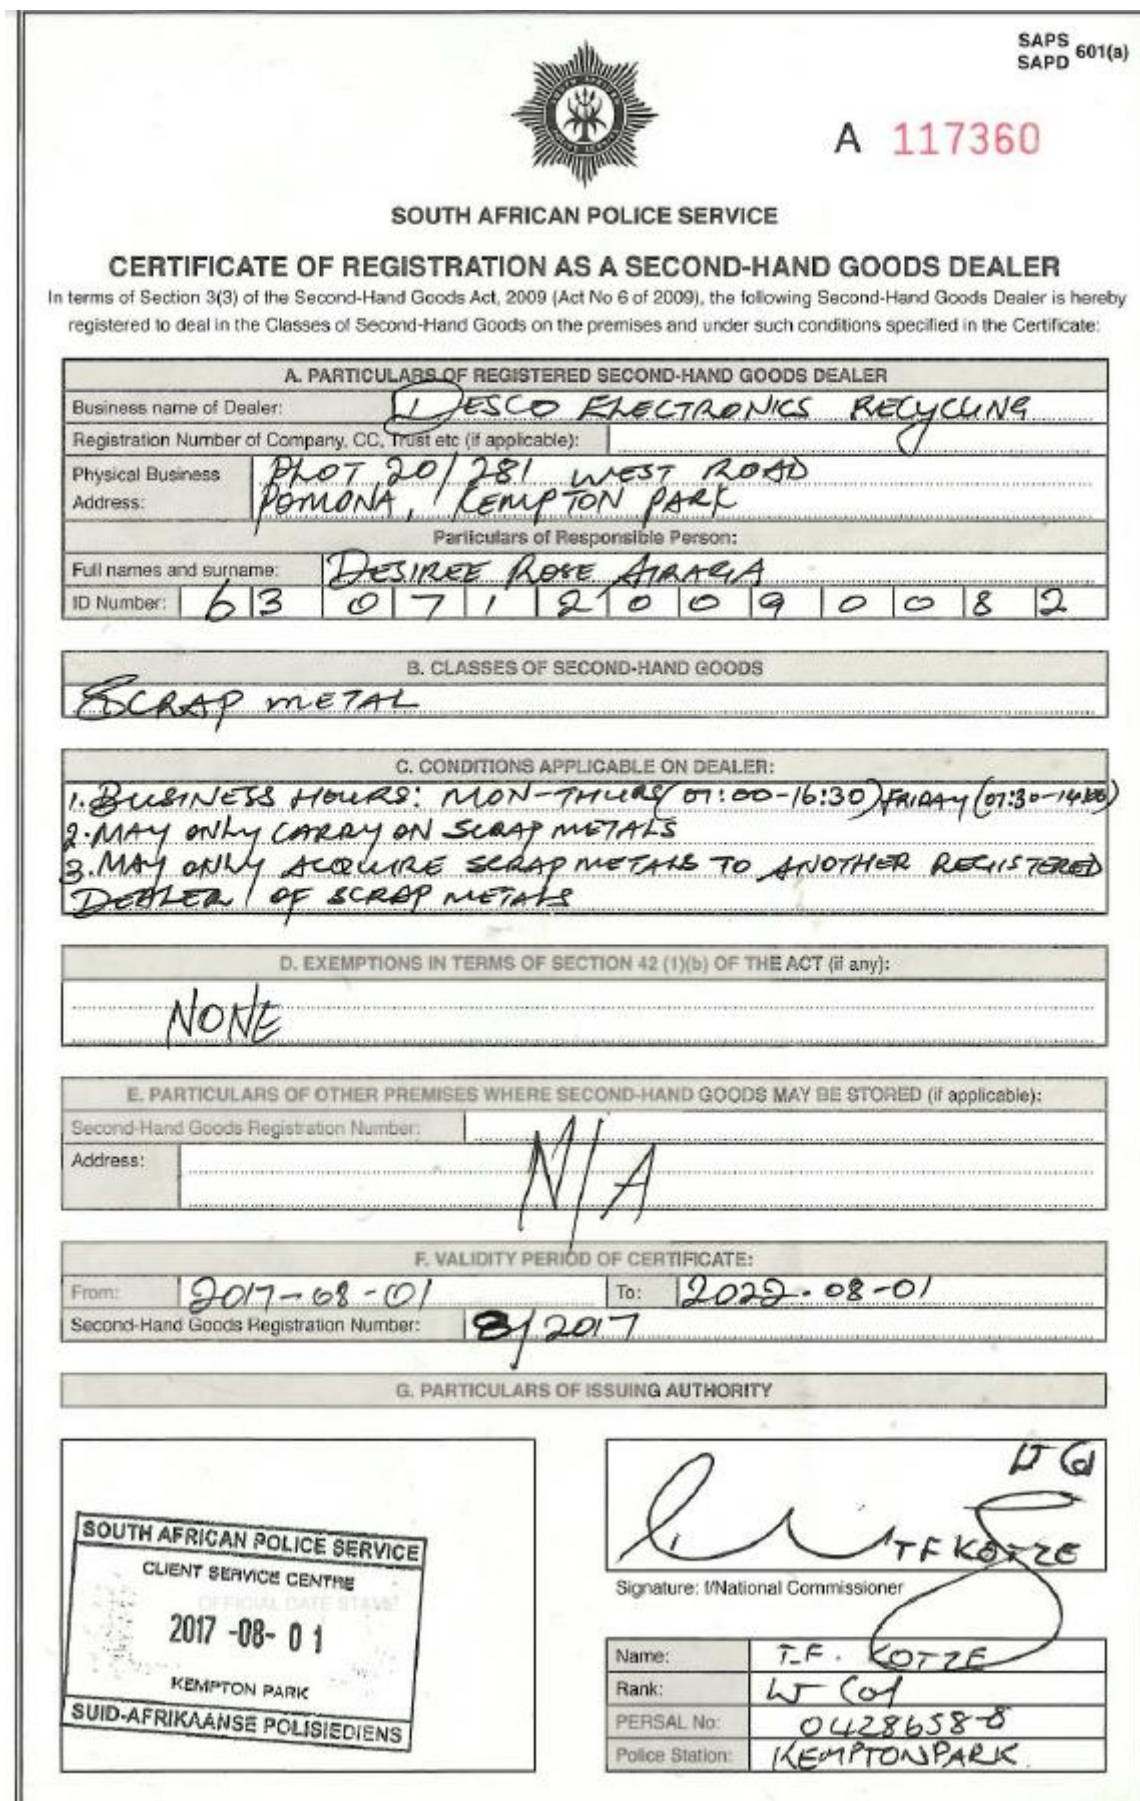 SAPS
SAPD 601(a)
A 117360
SOUTH AFRICAN POLICE SERVICE
CERTIFICATE OF REGISTRATION AS A SECOND-HAND GOODS DEALER
In terms of Section 3(3) of the Second-Hand Goods Act, 2009 (Act No 6 of 2009), the following Second-Hand Goods Dealer is hereby
registered to deal in the Classes of Second-Hand Goods on the premises and under such conditions specified in the Certificate:
A. PARTICULARS OF REGISTERED SECOND-HAND GOODS DEALER
Business name of Dealer: DESCO ELECTRONICS RECYCLING
Registration Number of Company, CC, Trust etc (if applicable):
Physical Business PLOT 20/281 WEST ROAD
Address: POMONA, KEMPTON PARK
Particulars of Responsible Person:
Full names and surname: DESIREE ROSE AIRAGA
ID Number: 6 3 0 7 1 2 0 0 9 0 0 8 2
B. CLASSES OF SECOND-HAND GOODS
SCRAP METAL
C. CONDITIONS APPLICABLE ON DEALER:
1. BUSINESS HOURS: MON-THURS (07:00-16:30) FRIDAY (07:30-14:00)
2. MAY ONLY CARRY ON SCRAP METALS
3. MAY ONLY ACQUIRE SCRAP METALS TO ANOTHER REGISTERED
DEALER OF SCRAP METALS
D. EXEMPTIONS IN TERMS OF SECTION 42 (1)(b) OF THE ACT (if any):
NONE
E. PARTICULARS OF OTHER PREMISES WHERE SECOND-HAND GOODS MAY BE STORED (if applicable):
Second-Hand Goods Registration Number:
Address:
N/A
F. VALIDITY PERIOD OF CERTIFICATE:
From: 2017-08-01 To: 2022-08-01
Second-Hand Goods Registration Number: 8/2017
G. PARTICULARS OF ISSUING AUTHORITY
SOUTH AFRICAN POLICE SERVICE
CLIENT SERVICE CENTRE
OFFICIAL DATE STAMP
2017 -08- 01
KEMPTON PARK
SUID-AFRIKAANSE POLISIEDIENS
Lt Col
TF KOTZE
Signature: f/National Commissioner
Name: T.F. KOTZE
Rank: Lt Col
PERSAL No: 0428658-8
Police Station: KEMPTON PARK